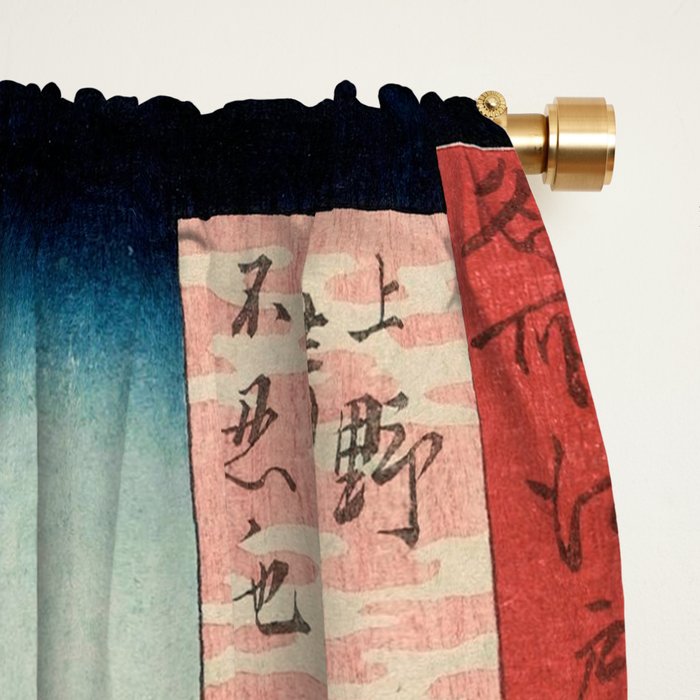 名所江戸
上野
不忍ノ池